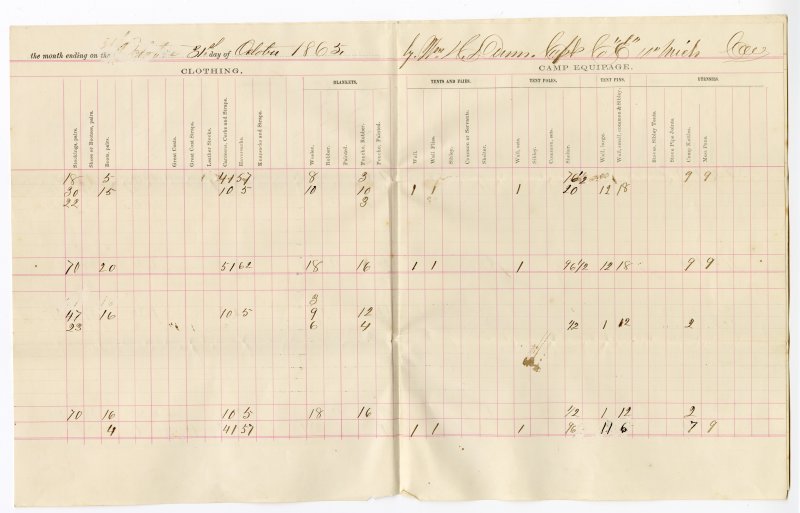 the month ending on the 31st day of October 1865. by Wm H. Dunn. Capt Co "E" 11th Mich Cav
CLOTHING. CAMP EQUIPAGE.
BLANKETS. TENTS AND FLIES. TENT POLES. TENT PINS. UTENSILS.
Stockings, pairs.
Shoes or Bootees, pairs.
Boots, pairs.
Great Coats.
Great Coat Straps.
Leather Stocks.
Canteens, Corks and Straps.
Haversacks.
Knapsacks and Straps.
Woolen.
Rubber.
Painted.
Poncho, Rubber.
Poncho, Painted.
Wall.
Wall Flies.
Sibley.
Common or Servants.
Shelter.
Wall, sets.
Sibley.
Common, sets.
Shelter.
Wall, large.
Wall, small common & Sibley.
Stoves, Sibley Tents.
Stove Pipe Joints.
Camp Kettles.
Mess Pans.
18 5 41 57 8 3 76 1/2 9 9
30 15 10 5 10 10 1 1 1 20 12 18
22 3
70 20 51 62 18 16 1 1 1 96 1/2 12 18 9 9
3
47 16 10 5 9 12
23 6 4 1/2 1 12 2
70 16 10 5 18 16 1/2 1 12 2
4 41 57 1 1 1 96 11 6 7 9